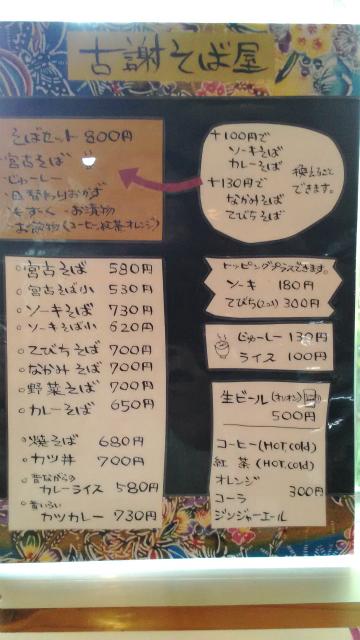 古謝そば屋
そばセット 800円
・宮古そば
・じゅーしー
・日替わりおかず
・もずく ・お漬物
・お飲物(コーヒー、紅茶、オレンジ)
+100円で
ソーキそば
カレーそば
+130円で
なかみそば
てびちそば
換えることできます。
宮古そば 580円
宮古そば小 530円
ソーキそば 730円
ソーキそば小 620円
てびちそば 700円
なかみそば 700円
野菜そば 700円
カレーそば 650円
焼そば 680円
カツ丼 700円
昔ながらの
カレーライス 580円
カツカレー 730円
トッピングプラスできます。
ソーキ 180円
てびち(2コ) 300円
じゅーしー 130円
ライス 100円
生ビール(オリオン)
500円
コーヒー(HOT,cold)
紅茶(HOT,cold)
オレンジ
コーラ 300円
ジンジャーエール